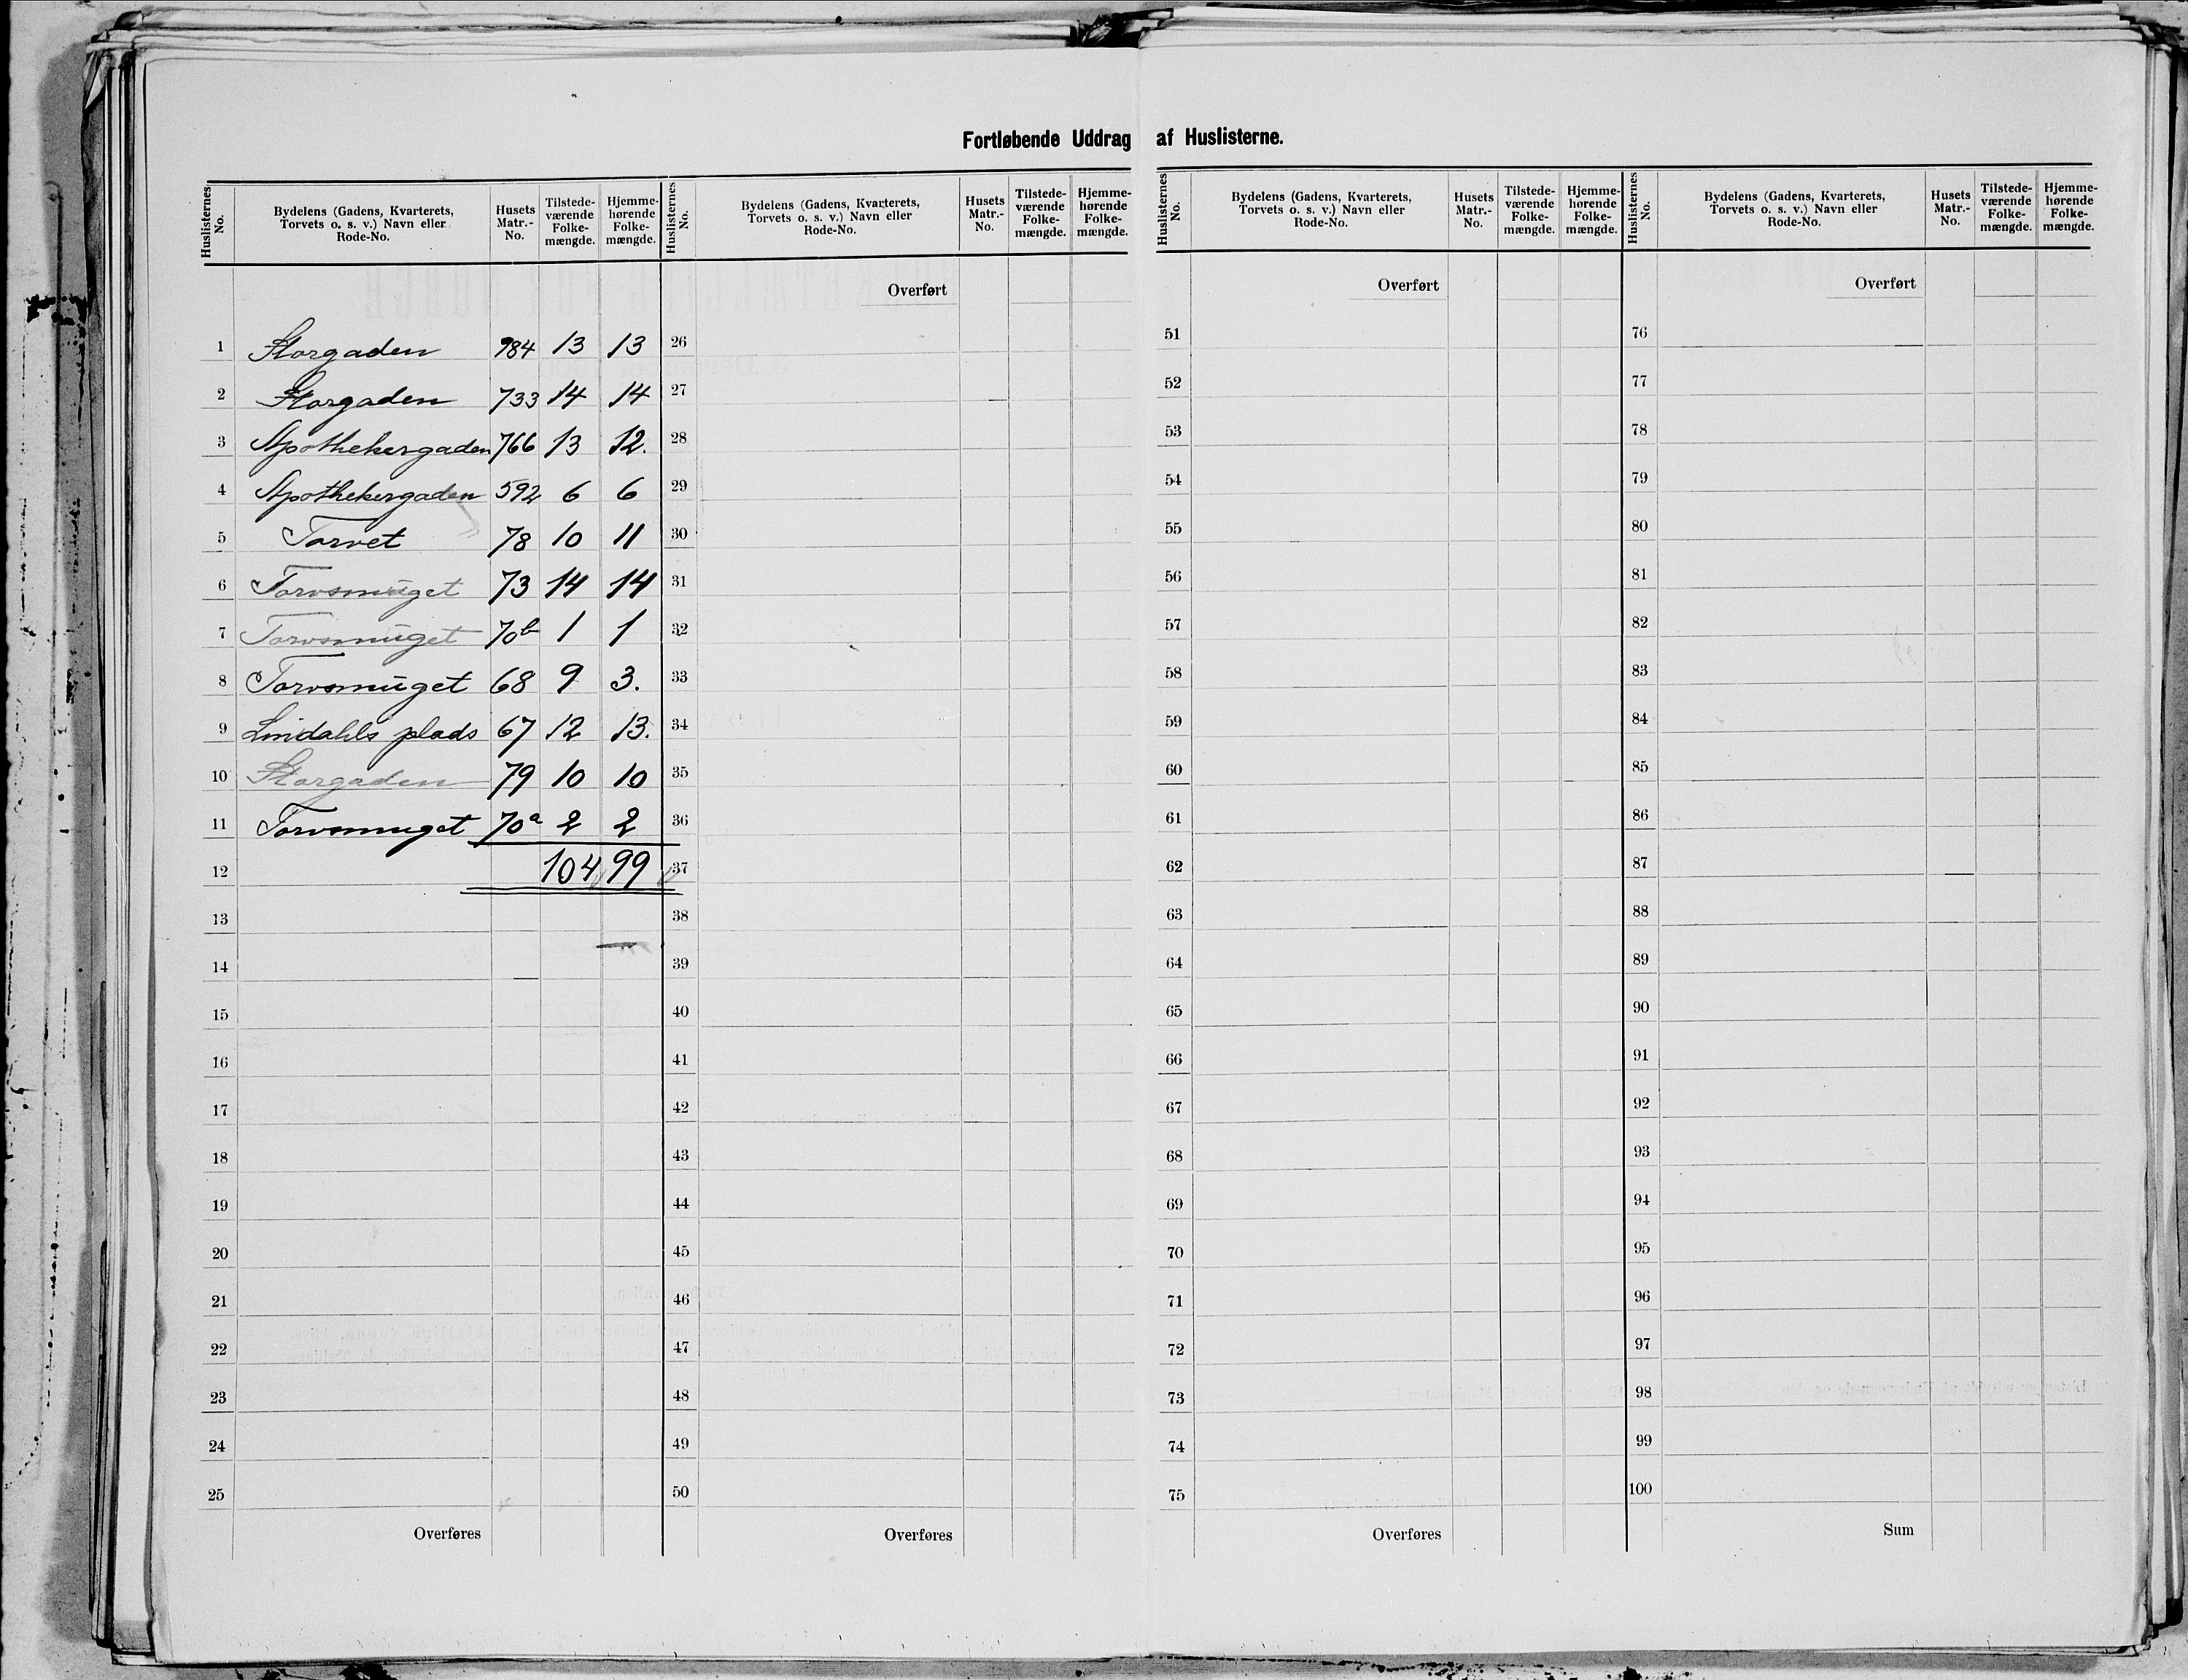 Fortløbende Uddrag af Huslisterne.
Huslisternes No. | Bydelens (Gadens, Kvarterets, Torvets o. s. v.) Navn eller Rode-No. | Husets Matr.-No. | Tilstedeværende Folkemængde. | Hjemmehørende Folkemængde.
1 Storgaden 984 13 13
2 Storgaden 733 14 14
3 Apothekergaden 766 13 12.
4 Apothekergaden 592 6 6
5 Torvet 78 10 11
6 Torvsmuget 73 14 14
7 Torvsmuget 70b 1 1
8 Torvsmuget 68 9 3.
9 Lindahls plads 67 12 13.
10 Storgaden 79 10 10
11 Torvsmuget 70a 2 2
12 104 99
13
14
15
16
17
18
19
20
21
22
23
24
25
Overføres
Huslisternes No. | Bydelens (Gadens, Kvarterets, Torvets o. s. v.) Navn eller Rode-No. | Husets Matr.-No. | Tilstedeværende Folkemængde. | Hjemmehørende Folkemængde.
Overført
26
27
28
29
30
31
32
33
34
35
36
37
38
39
40
41
42
43
44
45
46
47
48
49
50
Overføres
Huslisternes No. | Bydelens (Gadens, Kvarterets, Torvets o. s. v.) Navn eller Rode-No. | Husets Matr.-No. | Tilstedeværende Folkemængde. | Hjemmehørende Folkemængde.
Overført
51
52
53
54
55
56
57
58
59
60
61
62
63
64
65
66
67
68
69
70
71
72
73
74
75
Overføres
Huslisternes No. | Bydelens (Gadens, Kvarterets, Torvets o. s. v.) Navn eller Rode-No. | Husets Matr.-No. | Tilstedeværende Folkemængde. | Hjemmehørende Folkemængde.
Overført
76
77
78
79
80
81
82
83
84
85
86
87
88
89
90
91
92
93
94
95
96
97
98
99
100
Sum